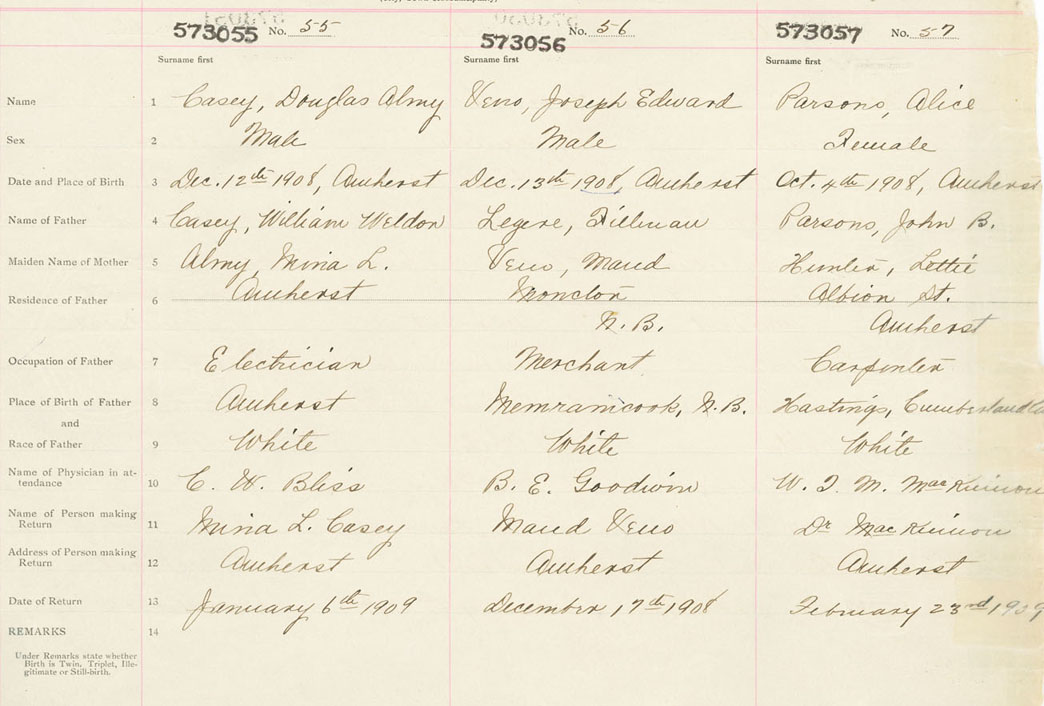 573055 No. 55 573056 No. 56 573057 No. 57
Surname first Surname first Surname first
Name 1 Casey, Douglas Almy Veno, Joseph Edward Parsons, Alice
Sex 2 Male Male Female
Date and Place of Birth 3 Dec. 12th 1908, Amherst Dec. 13th 1908, Amherst Oct. 4th 1908, Amherst
Name of Father 4 Casey, William Weldon Legere, Fillman Parsons, John B.
Maiden Name of Mother 5 Almy, Mina L. Veno, Maud Hunter, Lettie
Residence of Father 6 Amherst Moncton Albion St.
N. B. Amherst
Occupation of Father 7 Electrician Merchant Carpenter
Place of Birth of Father 8 Amherst Memramcook, N. B. Hastings, Cumberland Co
and
Race of Father 9 White White White
Name of Physician in at-
tendance 10 C. W. Bliss B. E. Goodwin W. T. M. MacKinnon
Name of Person making
Return 11 Mina L. Casey Maud Veno Dr MacKinnon
Address of Person making
Return 12 Amherst Amherst Amherst
Date of Return 13 January 6th 1909 December 17th 1908 February 23rd 1909
REMARKS 14
Under Remarks state whether
Birth is Twin, Triplet, Ille-
gitimate or Still-birth.